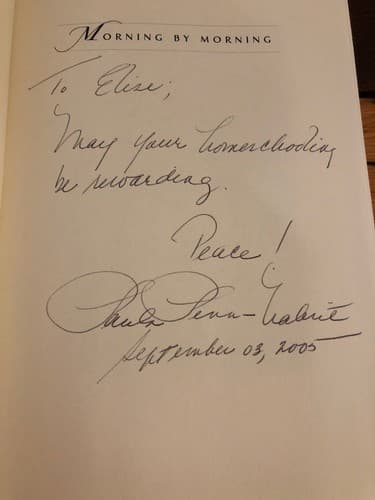 MORNING BY MORNING
To Elise;
May your homeschooling
be rewarding.
Peace!
Paula Penn-Nabrit
September 03, 2005